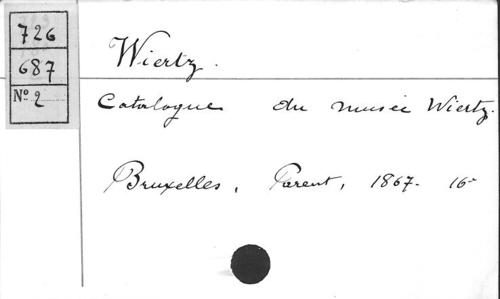 726
687
Nº 2
Wiertz.
Catalogue du musée Wiertz.
Bruxelles, Parent, 1867. 16º